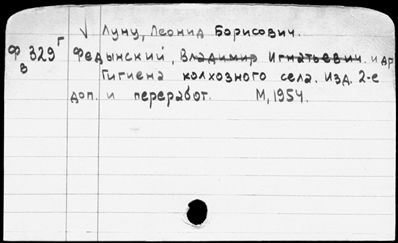 √ Луну, Леонид Борисович.
Ф 329 г
в
Федынский, Владимир Игнатьевич. и др
Гигиена колхозного села. Изд. 2-е
доп. и переработ. М, 1954.